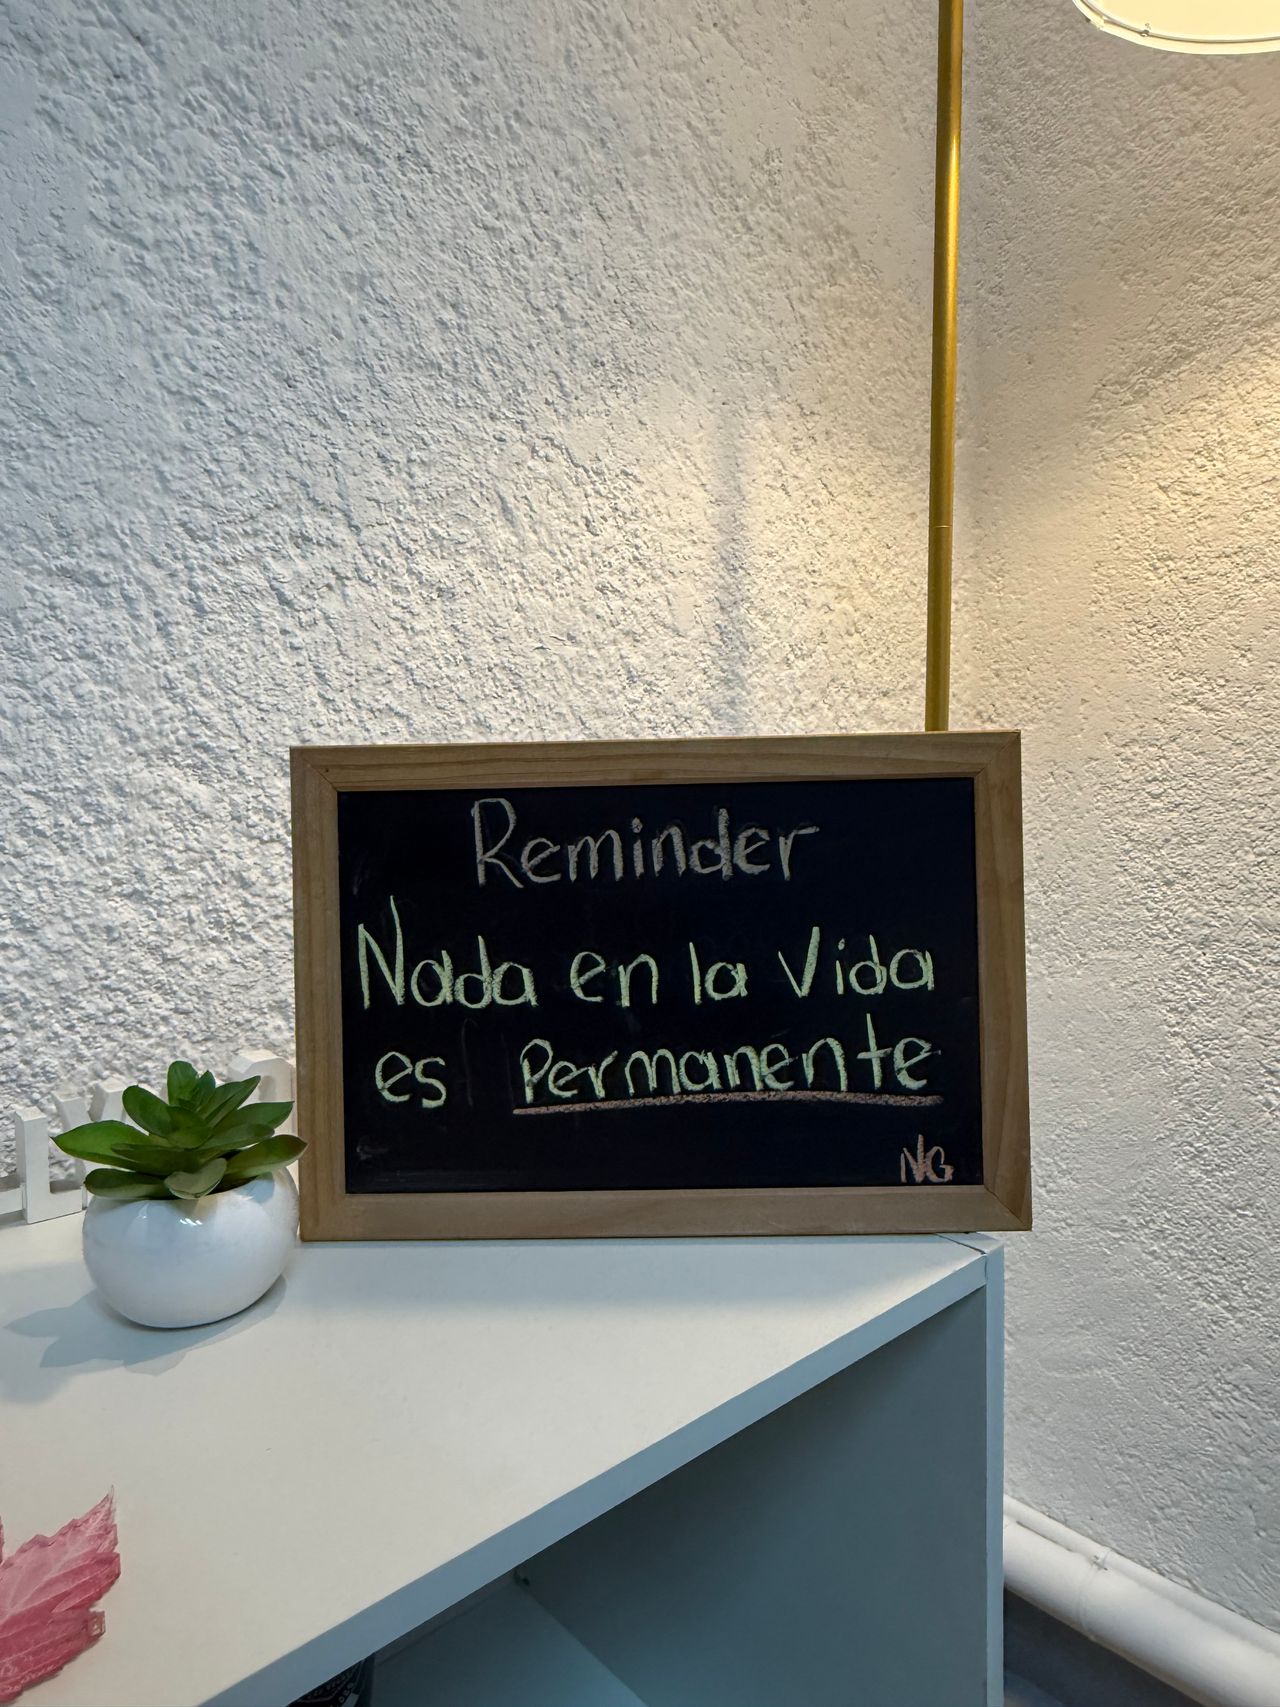 Reminder
Nada en la Vida
es Permanente
NG